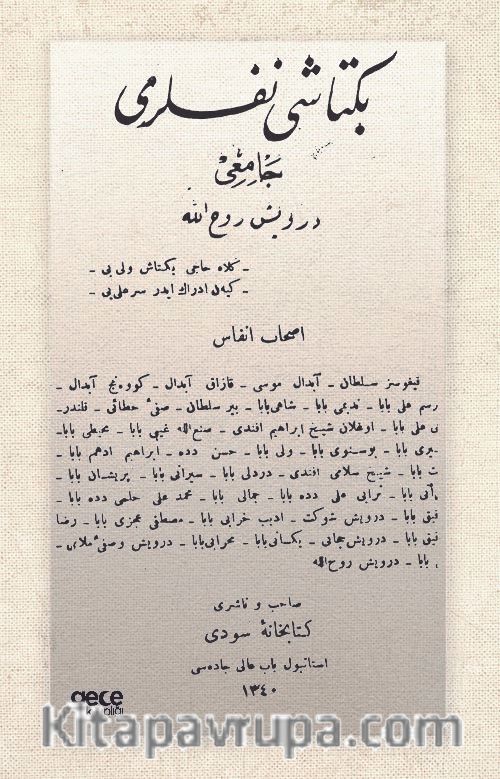 بكتاشى نفسلرى
جَامِعِىْ
درويش روح الله
ـ كلاه حاجى بكتاش ولى بى ـ
ـ كيهن ادراك ايدر سر على بى ـ
اصحاب انفاس
قيغوسز سلطان ـ آبدال موسى ـ قازاق آبدال ـ كووه نج آبدال ـ
رسم على بابا ـ نديمى بابا ـ شاهى بابا ـ پير سلطان ـ صفئ خطائى ـ قلندر ـ
ى على بابا ـ اوغلان شيخ ابراهيم افندى ـ صنع الله غيبى بابا ـ محيطى بابا ـ
يرى بابا ـ بوسنوى بابا ـ ولى بابا ـ حسن دده ـ ابراهيم ادهم بابا ـ
ت بابا ـ شيخ سلامى افندى ـ دردلى بابا ـ سيرانى بابا ـ پريشان بابا ـ
آنى بابا ـ ترابى على دده بابا ـ جمالى بابا ـ محمد على حلمى دده بابا ـ
فيقى بابا ـ درويش شوكت ـ اديب خرابى بابا ـ مصطفى عجزى بابا ـ رضا
فيق بابا ـ درويش جمالى ـ يكسانى بابا ـ محرابى بابا ـ درويش وصفئ ملاى ـ
بابا ـ درويش روح الله
صاحب و ناشرى
كتابخانهٔ سودى
استانبول باب عالى جاده سى
١٣٤٠
gece
kitaplığı
Kitapavrupa.com